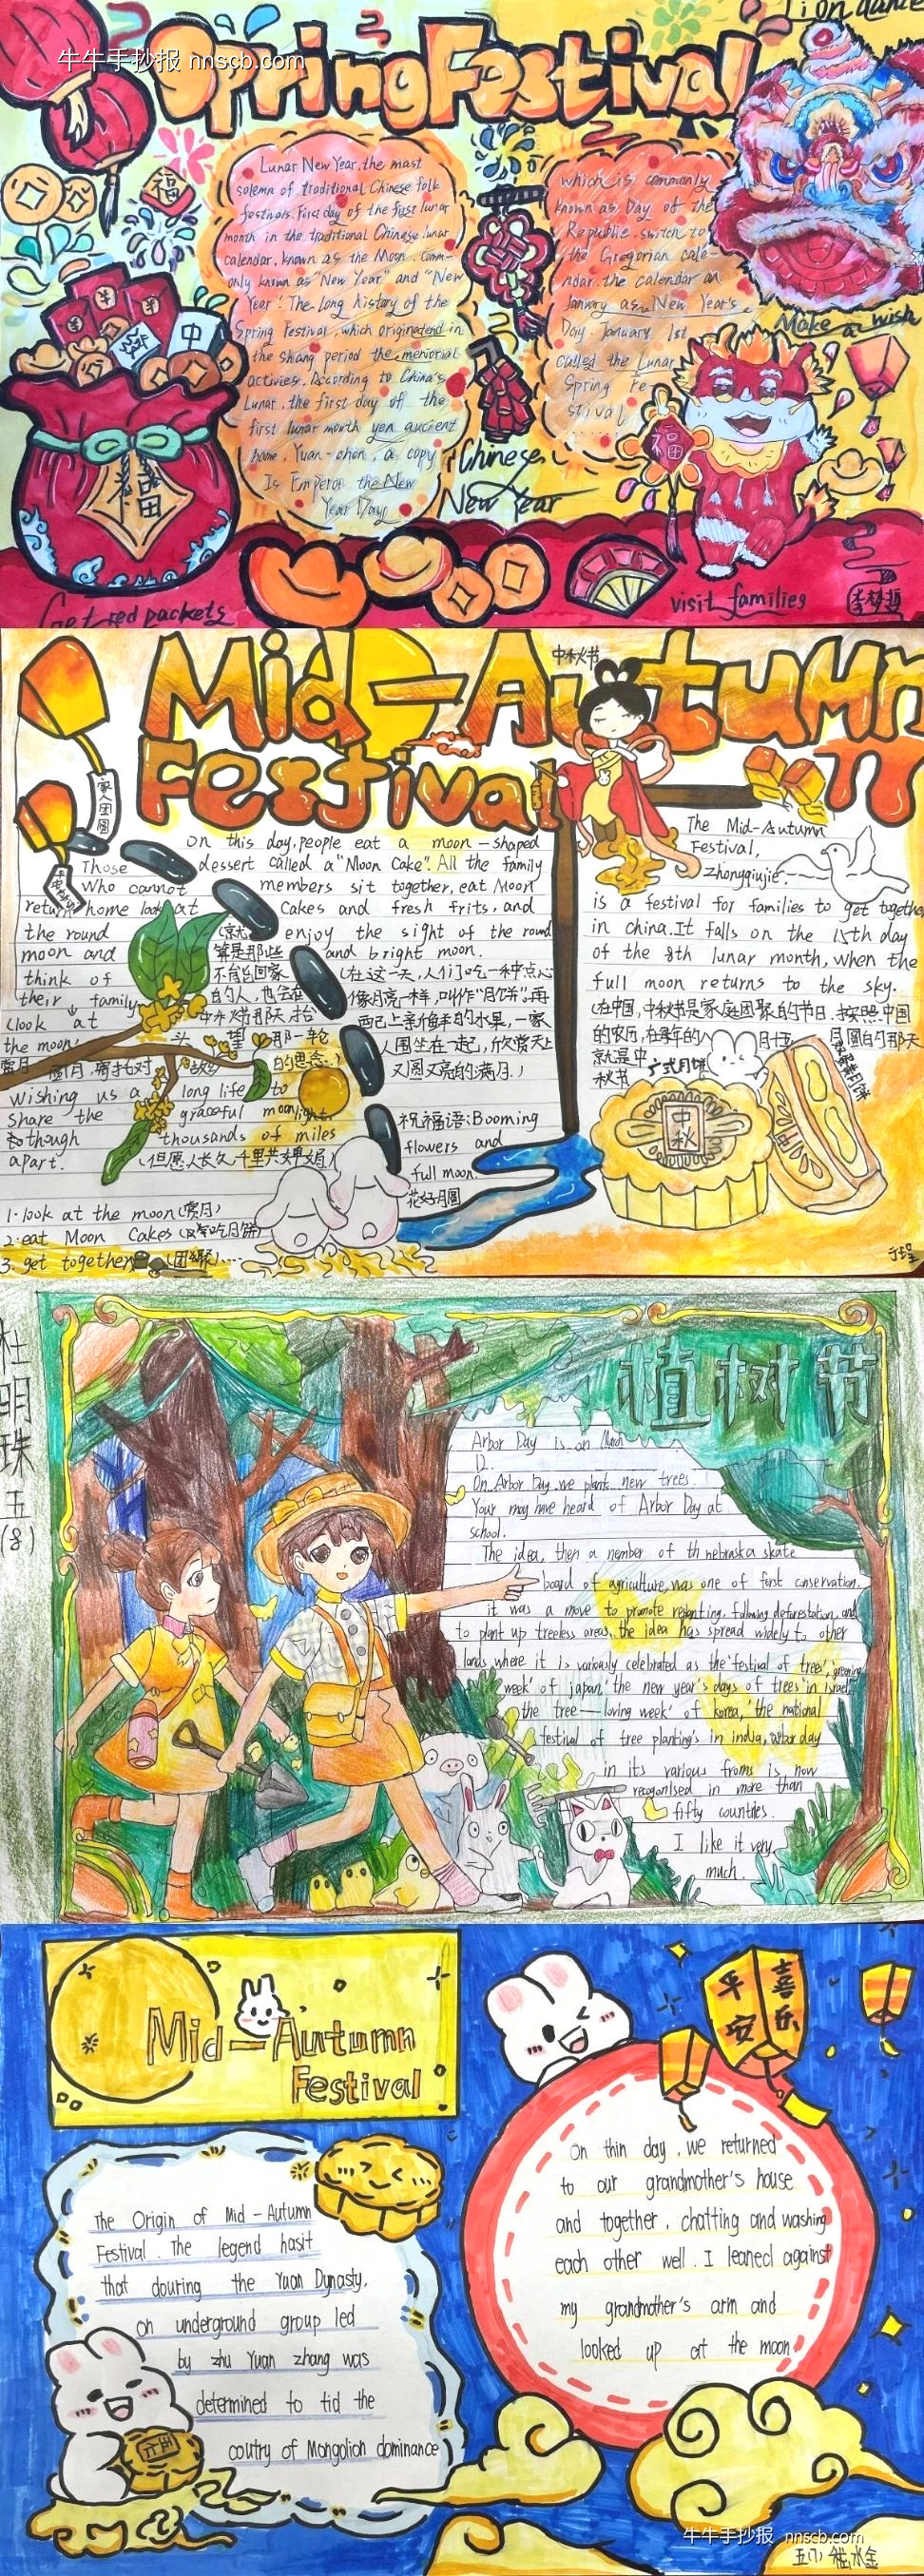 牛牛手抄报 nnscb.com
Spring Festival
Lion dance
福
Lunar New Year, the mast
solemn of traditional Chinese folk
festivals. First day of the first lunar
month in the traditional Chinese lunar
calendar, known as the Moon. Comm-
only known as "New Year" and "New
Year". The long history of the
Spring Festival, which originatend in
the shang period the memorial
activies. According to China's
Lunar, the first day of the
first lunar month yen aucient
home, Yuan-chen, a copy
Is Emperor the New
Year Day
which is commonly
known as Day of the
Republic. switch to
the Gregorian cale-
ndar. the calendar on
January as New Year's
Day. January 1st
called the Lunar
Spring Fe-
stival
......
Make a wish
中
福
福
Chinese
New Year
Get red packets
visit families
Mid-Autumn
Festival
中秋节
家人团圆
On this day, people eat a moon-shaped
dessert called a "Moon Cake". All the family
members sit together, eat Moon
Cakes and fresh frits, and
enjoy the sight of the round
and bright moon.
(在这一天,人们吃一种点心
像月亮一样,叫作"月饼"。再
配上新鲜的水果,一家
人围坐在一起,欣赏天上
又圆又亮的满月.)
Those
who cannot
return home look at
the round
moon and
think of
their family
(look at
the moon)
(就
算是那些
不能回家
的人,也会在
中秋节那天 抬
头 望 那一轮
圆月,寄托对 故乡 的思念.)
赏月
Wishing us a long life to
share the graceful moonlight,
though thousands of miles
apart. (但愿人长久,千里共婵娟)
祝福语:Booming
flowers and
full moon.
花好月圆
1. look at the moon (赏月)
2. eat Moon Cakes (吃月饼)
3. get together (团聚)....
The Mid-Autumn
Festival,
Zhongqiujie.
is a festival for families to get together
in china. It falls on the 15th day
of the 8th lunar month, when the
full moon returns to the sky.
(在中国,中秋节是家庭团聚的节日.按照中国
的农历,在每年的八月十五 月圆的那天
就是中
秋节
广式月饼
中秋
杜明珠 五(8)
植树节
Arbor Day is on March
12.
On Arbor Day we plants new trees.
Your may have heard of Arbor Day at
school.
The idea, then a nember of th nebraska skate
board of agriculture, was one of forst conservation.
it was a move to promote replanting, following deforestation, and
to plant up treeless areas. the idea has spread widely to other
lands where it is variously celebrated as the 'festival of trees', 'greening
week' of japan, 'the new year's days of trees' in Israel,
the tree-loving week' of korea, 'the national
festival of tree planting's in india, arbor day
in its various froms is now
recogonlised in more than
fifty countries.
I like it very
much.
Mid-Autumn
Festival
平安
喜乐
The Origin of Mid-Autumn
Festival. The legend hasit
that douring the Yuan Dynasty,
on underground group led
by zhu Yuan zhang was
determined to tid the
coutry of Mongolion dominance
On thin day, we returned
to our grandmother's house
and together, chatting and washing
each other well. I leaned against
my grandmother's arm and
looked up at the moon.
牛牛手抄报 nnscb.com